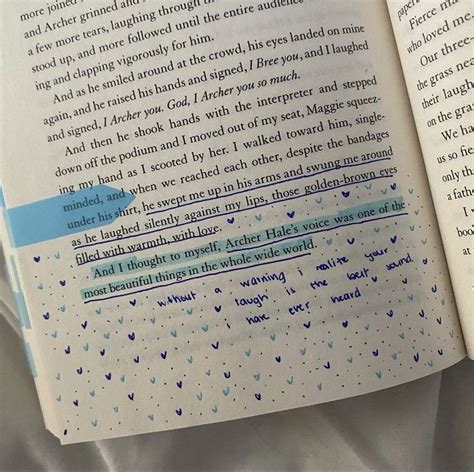 more joined
and Archer grinned and
a few more tears, laughing through
stood up, and more followed until the entire audience
ing and clapping vigorously for him.
And as he smiled around at the crowd, his eyes landed on mine
again, and he raised his hands and signed, I Bree you, and I laughed
and signed, I Archer you. God, I Archer you so much.
And then he shook hands with the interpreter and stepped
down off the podium and I moved out of my seat, Maggie squeez-
ing my hand as I scooted by her. I walked toward him, single-
minded, and when we reached each other, despite the bandages
under his shirt, he swept me up in his arms and swung me around
as he laughed silently against my lips, those golden-brown eyes
filled with warmth, with love.
And I thought to myself, Archer Hale's voice was one of the
most beautiful things in the whole wide world.
without a warning i realize your
laugh is the best sound
i have ever heard
paper
Fierce ma
who loved m
Our three-
the grass nea
their laugh
on the grass
We h
us so fie
only th
a fait
I
boo
at